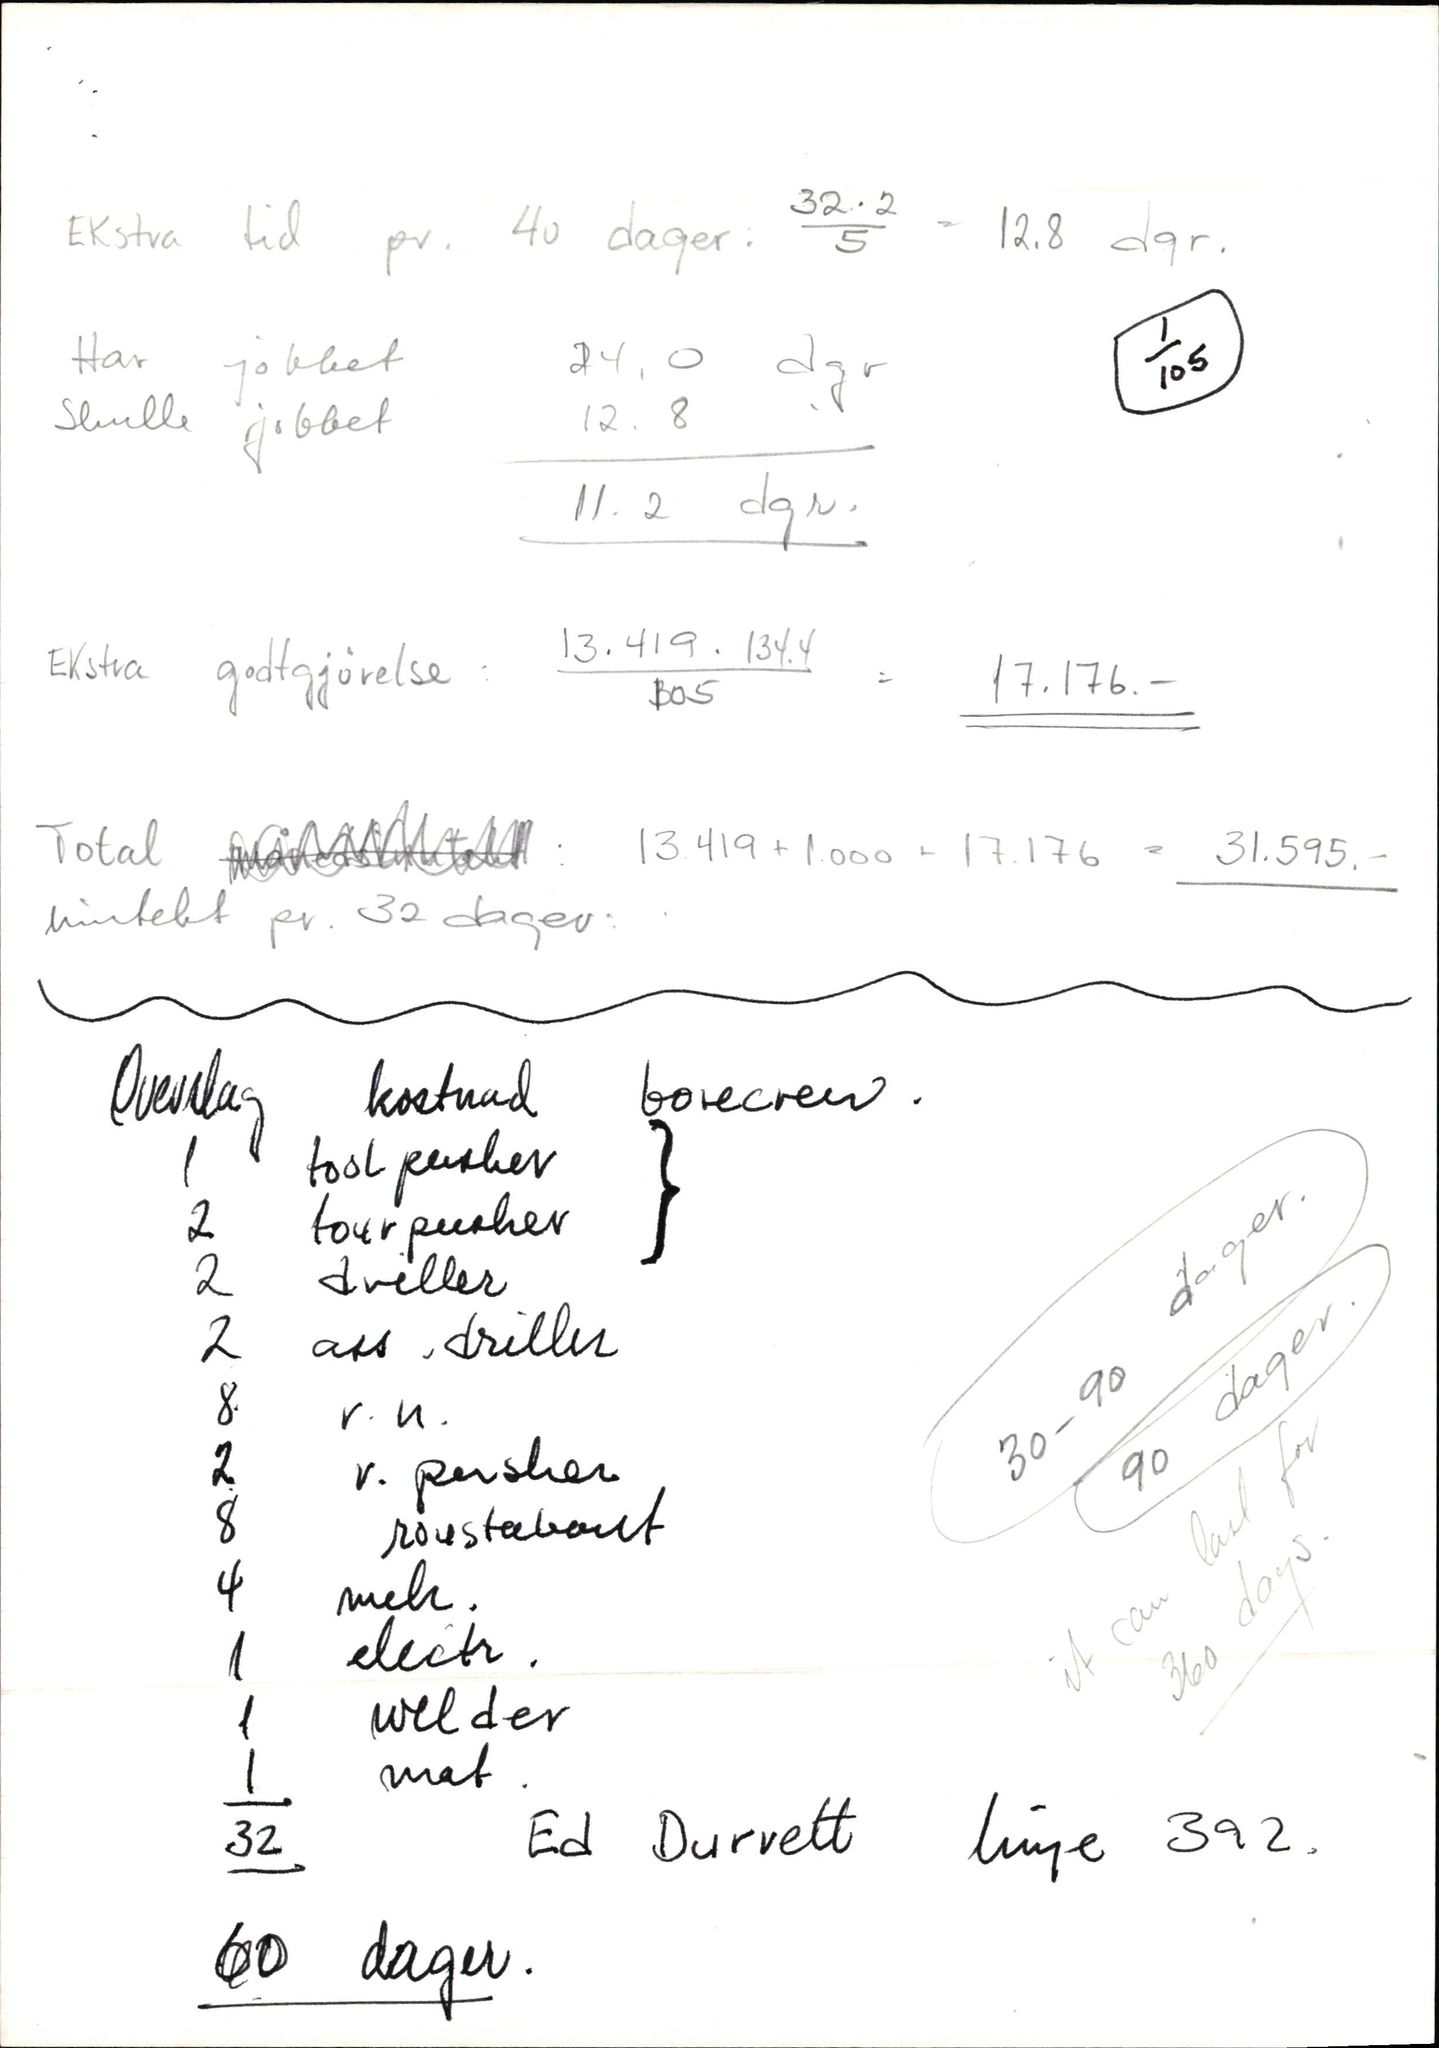 Ekstra tid pr. 40 dager: 32·2/5 = 12.8 dgr.
1/105
Har jobbet 24,0 dgr
Skulle jobbet 12.8 "
11.2 dgr.
Ekstra godtgjörelse: 13.419 · 134.4/105 = 17.176.-
Total : 13.419 + 1.000 + 17.176 = 31.595.-
inntekt pr. 32 dager:
Overslag kostnad borecrew.
1 toolpusher
2 tourpusher
2 driller
2 ass. driller
8 r.n.
2 r. pusher
8 roustabout
4 mek.
1 electr.
1 welder
1 mat.
32
30-90 dager.
90 dager.
it can last for
360 days.
Ed Durvett linje 392.
60 dager.